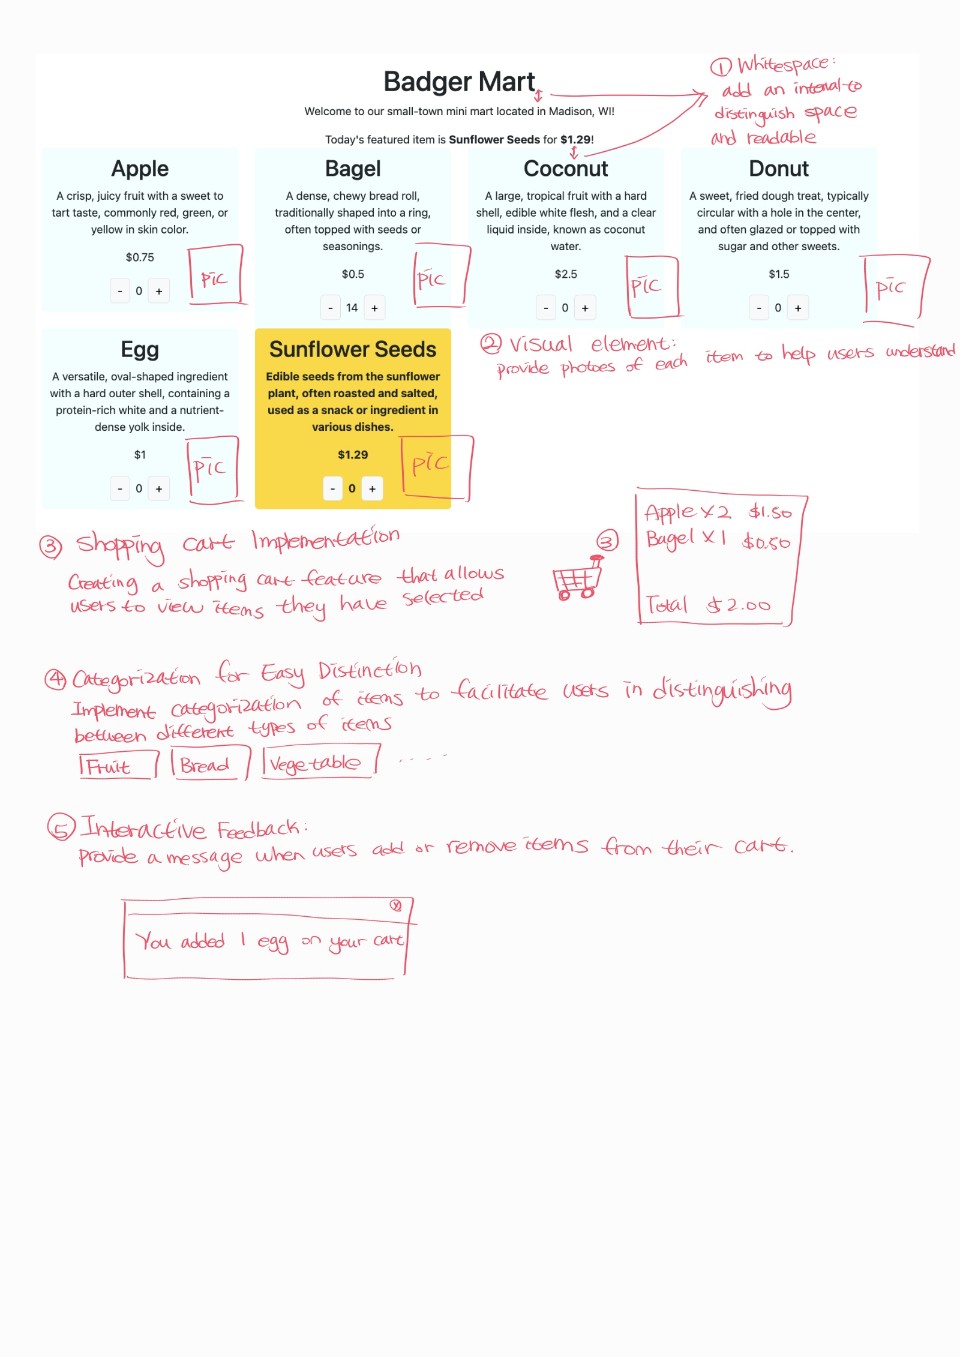 Badger Mart
Welcome to our small-town mini mart located in Madison, WI!
Today's featured item is Sunflower Seeds for $1.29!
① Whitespace:
add an interval to
distinguish space
and readable
Apple
A crisp, juicy fruit with a sweet to
tart taste, commonly red, green, or
yellow in skin color.
$0.75
- 0 +
pic
Bagel
A dense, chewy bread roll,
traditionally shaped into a ring,
often topped with seeds or
seasonings.
$0.5
- 14 +
pic
Coconut
A large, tropical fruit with a hard
shell, edible white flesh, and a clear
liquid inside, known as coconut
water.
$2.5
- 0 +
pic
Donut
A sweet, fried dough treat, typically
circular with a hole in the center,
and often glazed or topped with
sugar and other sweets.
$1.5
- 0 +
pic
Egg
A versatile, oval-shaped ingredient
with a hard outer shell, containing a
protein-rich white and a nutrient-
dense yolk inside.
$1
- 0 +
pic
Sunflower Seeds
Edible seeds from the sunflower
plant, often roasted and salted,
used as a snack or ingredient in
various dishes.
$1.29
- 0 +
pic
② Visual element:
provide photoes of each item to help users understand
③ Shopping cart Implementation
Creating a shopping cart feature that allows
users to view items they have selected
③
Apple X 2 $1.50
Bagel X 1 $0.50
Total $2.00
④ Categorization for Easy Distinction
Implement categorization of items to facilitate users in distinguishing
between different types of items
Fruit Bread Vegetable ....
⑤ Interactive Feedback:
Provide a message when users add or remove items from their cart.
ⓧ
You added 1 egg on your cart